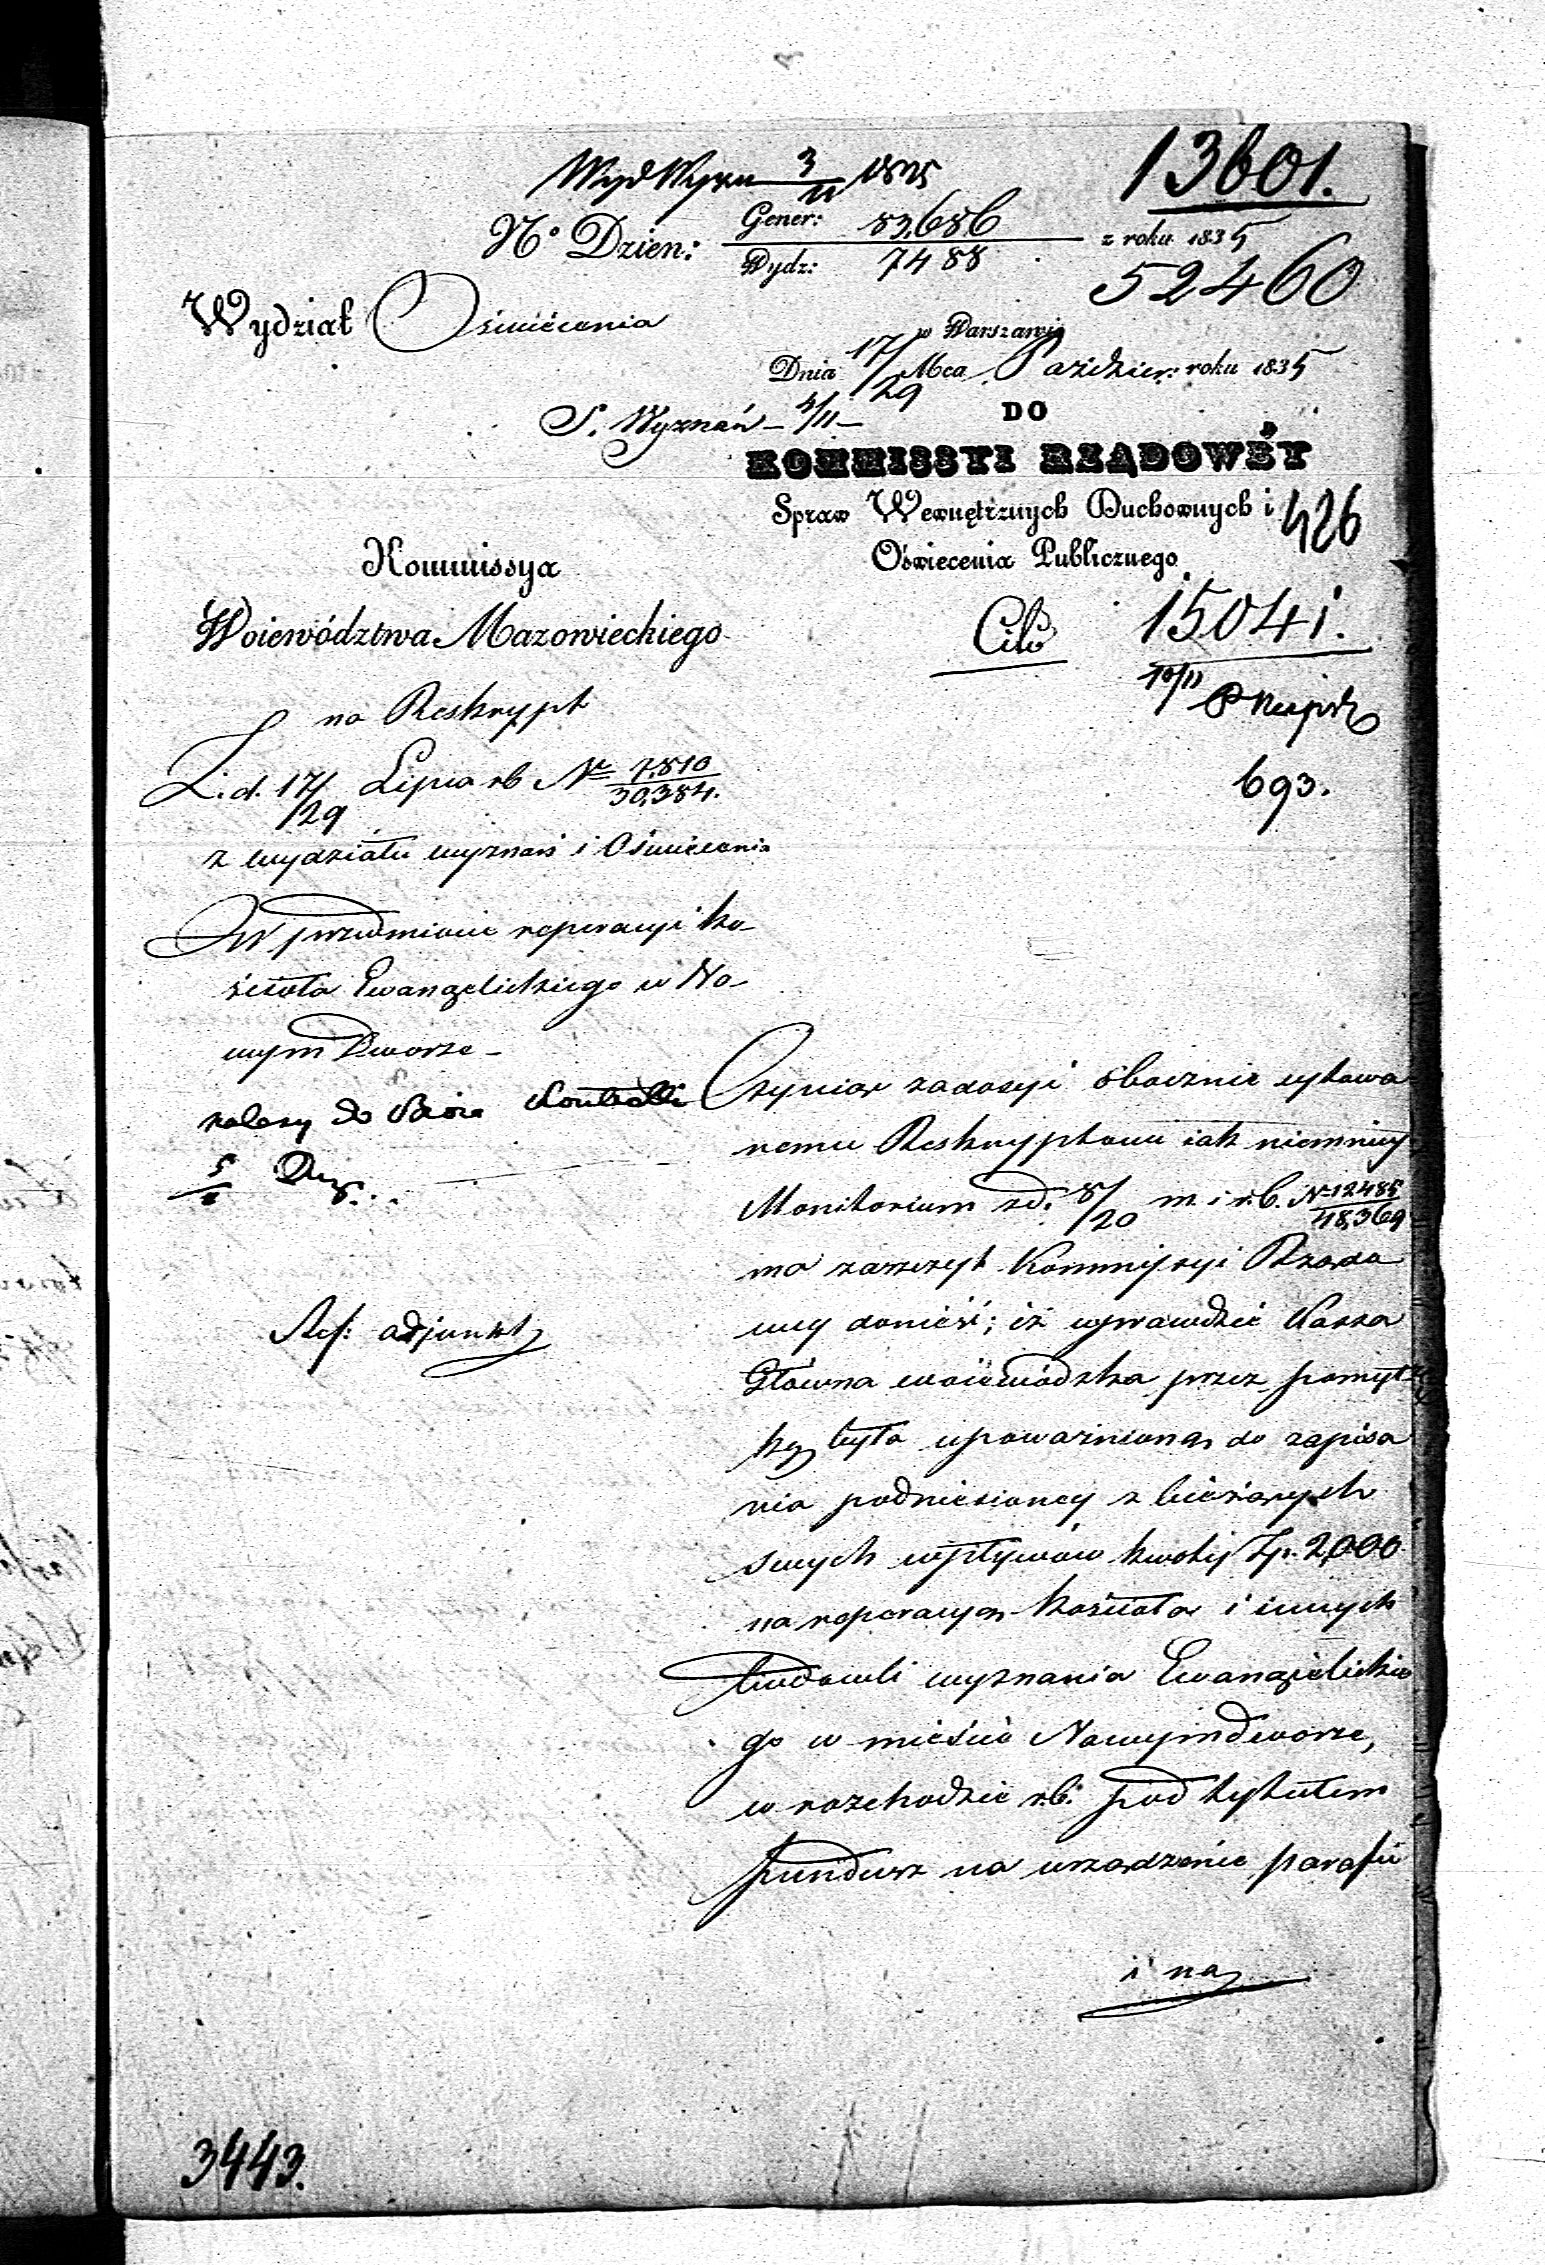 13601.
Wyd Wyzn 3/11 1835
N° Dzien: Gener: 83,686 z roku 1835
Wydz: 7488
52460
Wydział Oświecenia
w Warszawie
Dnia 17/29 Mca Paździer: roku 1835
S. Wyznań – 4/11 –
DO
KOMMISSYI RZĄDOWÉY
Spraw Wewnętrznych Duchownych i
426
Oświecenia Publicznego
Kommissya
Woiewództwa Mazowieckiego
Cito
15041.
10/11
693.
na Reskrypt
Z. d. 17/29 Lipca rb Nr 7,810/30,384.
z wydziału wyznań i Oświecenia
W przedmiocie reperacyi ko-
ścioła Ewangelickiego w No-
wym Dworze –
należy do Bióra Kontrolli
Ref: adjunkt
Czyniąc zadosyć obocznie cytowa
nemu Reskryptowi iak niemniey
Monitorium z d. 8/20 m. i r.b. N 12485/48,369
ma zaszczyt Kommissyi Rządo
wey donieść; iż wprawdzie Kassa
Główna woiewódzka przez pomył
kę była upoważnioną do zapisa
nia podniesioney z bieżących
swych wpływów kwoty Zp. 2,000
na reperacyą kościoła i innych
budowli wyznania Ewangielickie
go w mieście Nowymdworze,
w rozchodzie r.b. pod tytułem
fundusz na urządzenie parafii
i na
3443.